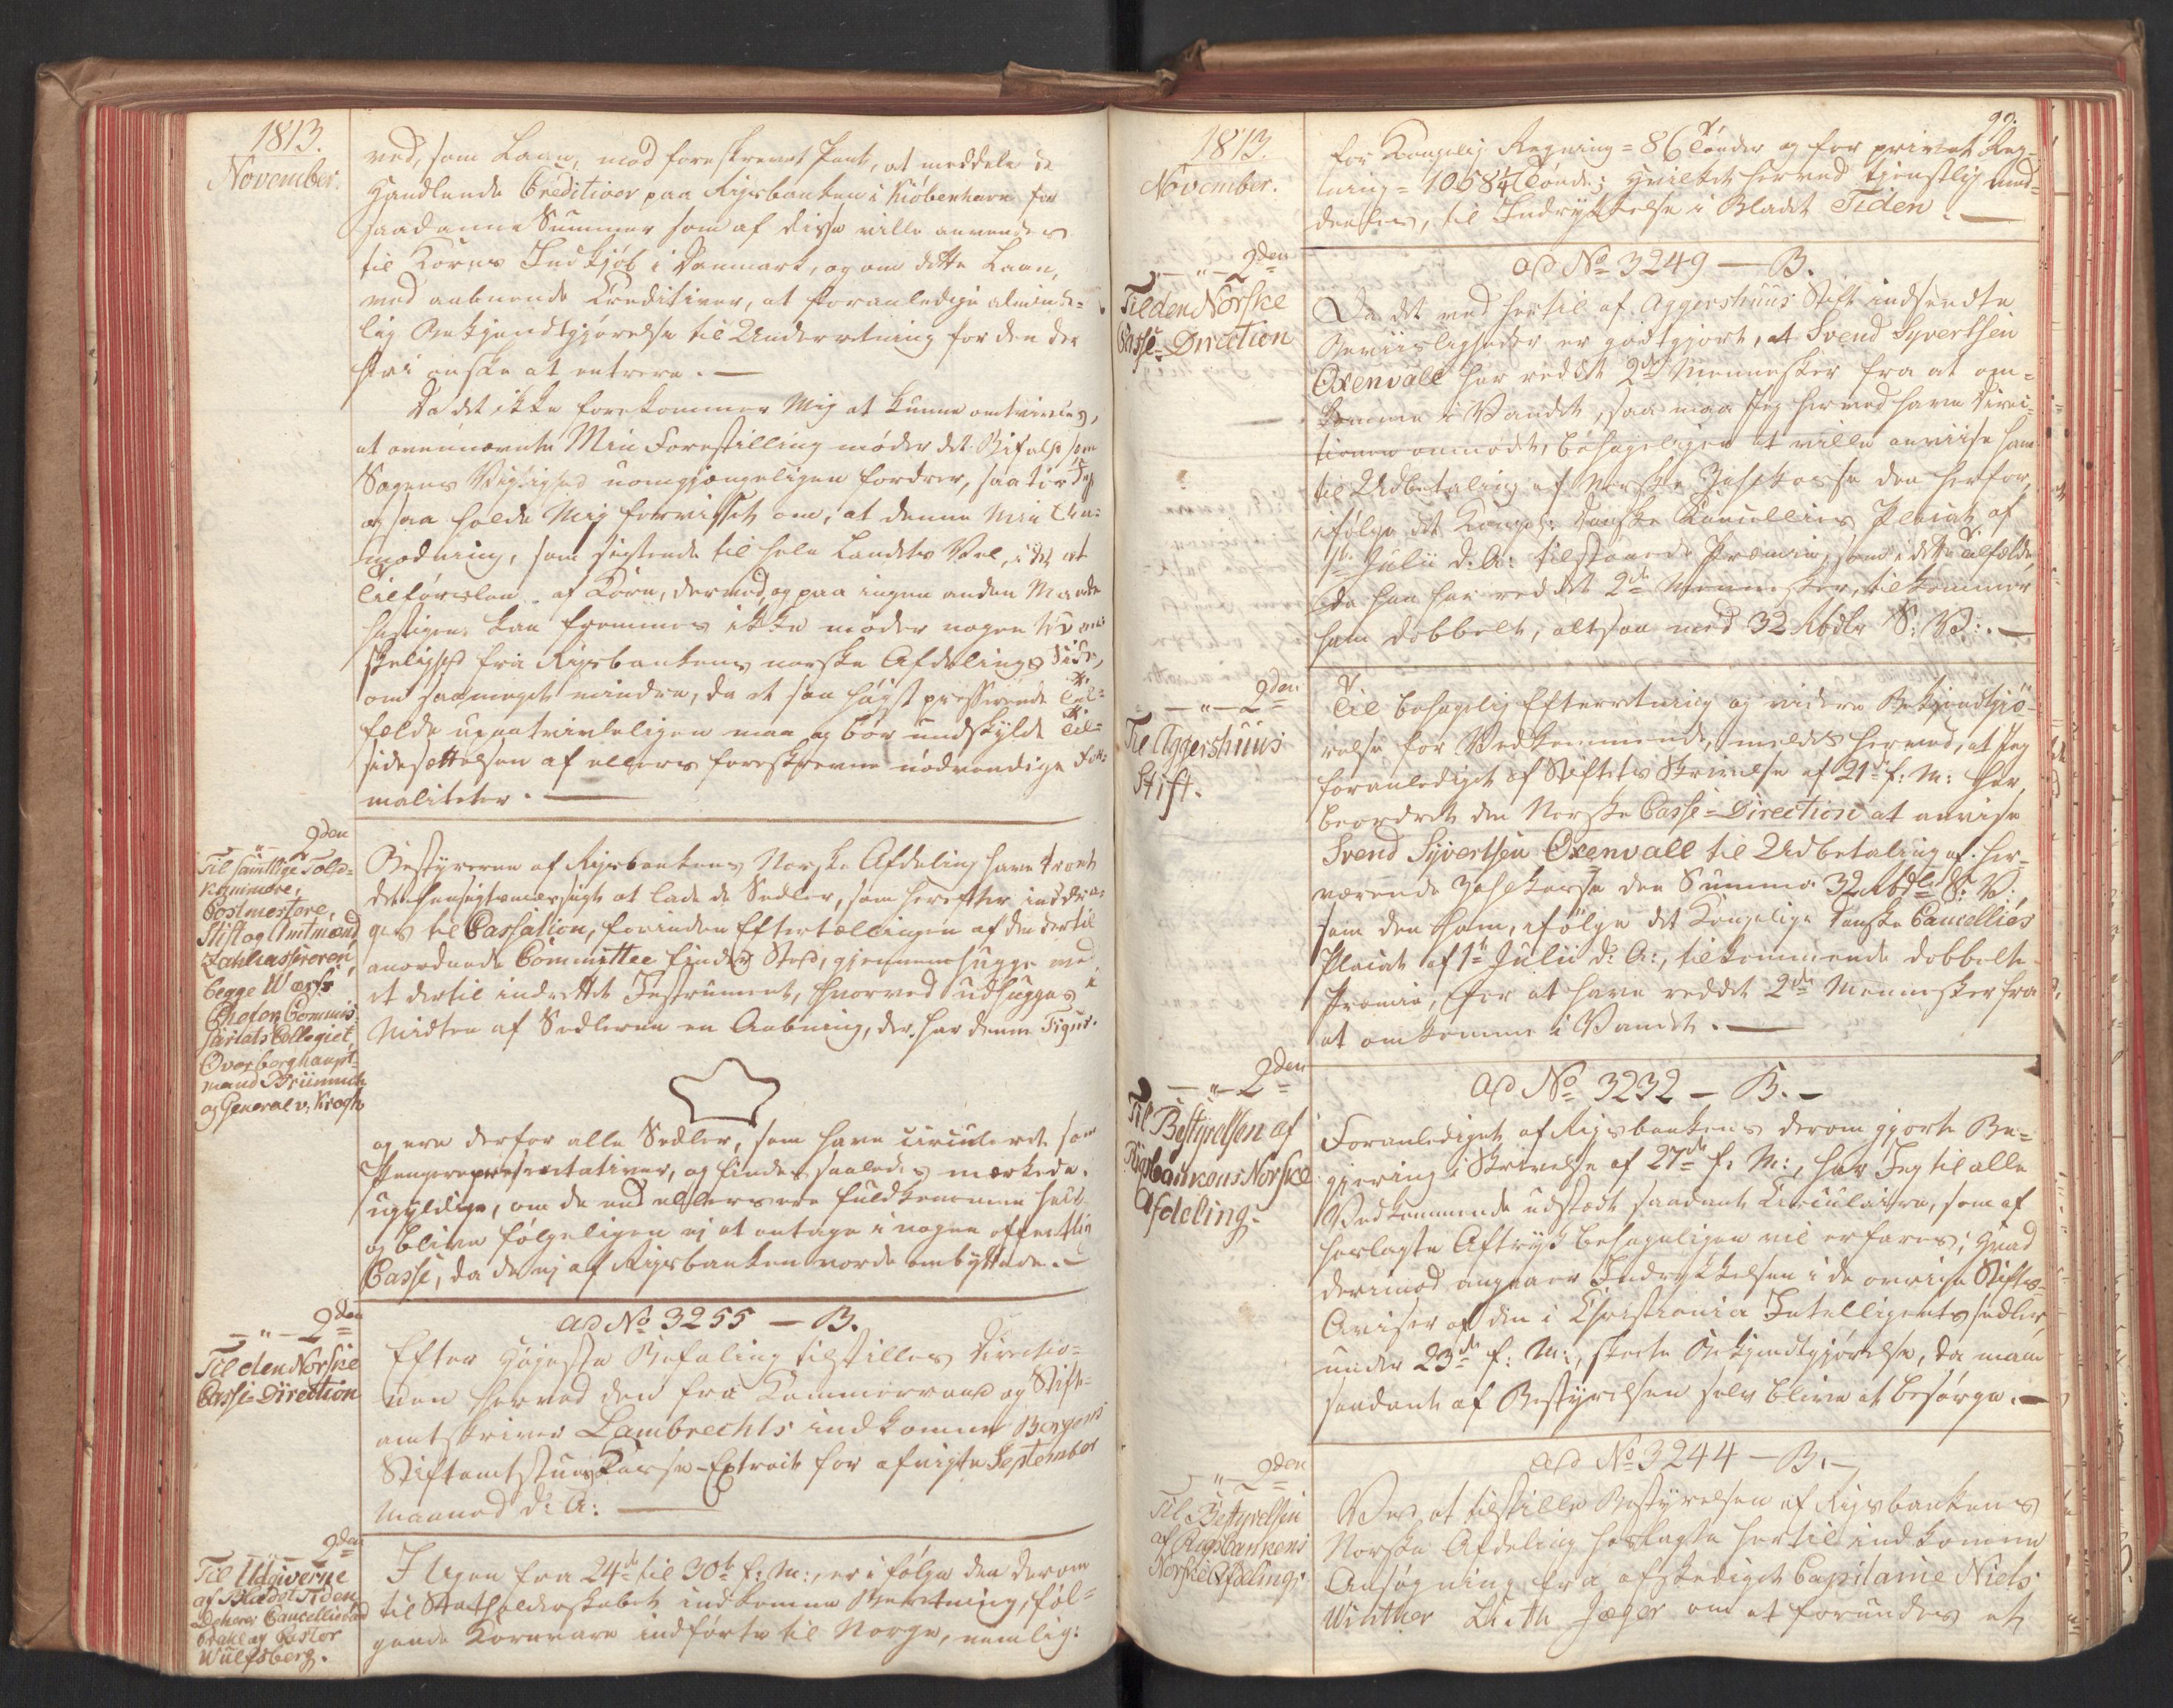 1813.
November.
ved, som Laan, mod foreskrevet Pant, at meddele de
Handlende Creditiver paa Rigsbanken i Kiöbenhavn for
saadanne Summer som af disse ville anvendes
til Korns Indkjøb i Danmark, og om dette Laan,
ved aabnende Creditiver, at foranledige alminde-
lig Bekjendtgjørelse til Underretning for den der
heri ønske at entrere. —
Da det ikke forekommer Mig at kunne omtvivles,
at ovennævnte Min Forestilling møder det Bifald som
Sagens Vigtighed uomgjængeligen fordrer, saa tør Jeg
og saa holde Mig forvisset om, at denne Min An-
modning, som sigtende til hele Landets Vel, i det at
Tilførslen af Korn, derved, og paa ingen anden Maade
hastigen kan fremmes ikke møder nogen Van-
skelighed fra Rigsbankens norske Afdelings Side,
om saameget mindre, da et saa høist presserende Til-
fælde upaatvivleligen maa og bør undskylde Til-
sidesættelsen af ellers foreskrevne nødvendige For-
maliteter. —
— " — 2den
Til samtlige Told-
kammere,
Postmestere,
Stift og Amtmænd
Zahlcassereren,
begge Værker
Chefen Commis-
sariats Collegiet,
Overberghaupt-
mand Brünnich
og General v. Krogh
Bestyreren af Rigsbankens Norske Afdeling have troet
det hensigtsmæssigt at lade de Sedler, som herefter inddra-
ges til Cassation, forinden Eftertællingen af den dertil
anordnede Committee finder Sted, gjennemhugge med
et dertil indrettet Instrument, hvorved udhugges i
Midten af Sedlerne en Aabning, der har denne Figur.
og ere derfor alle Sedler, som have circuleret som
Pengerepresentativer, og findes saaledes mærkede,
ugyldige, om de end ellers ere fuldkomne hele
og blive følgeligen ej at antage i nogen offentlig
Casse, da de ej af Rigsbanken vorde ombyttede. —
— " — 2den
Til den Norske
Casse-Direction
ad No 3255 — B.
Efter Højeste Befaling tilstilles Directio-
nen herved den fra Kammerraad og Stift-
amtskriver Lambrechts indkomne Bergens
Stiftamtstues Casse-Extract for afvigte September
Maaned d: A: —
— " — 2den
Til Udgiverne
af Bladet Tiden
Deherrer Cancelliraad
og Pastor
Wulfsberg.
I Ugen fra 24de til 30te f: M:, er i følge den derom
til Statholderskabet indkomne Beretning, føl-
gende Kornvare indførte til Norge, nemlig:
99.
1813.
November.
for Kongelig Regning = 86 Tönder og for privat Reg-
ning = 1058¼ Tönde; hvilket herved tjenstlig med-
deeles, til Indrykkelse i Bladet Tiden. —
— " — 2den
Til den Norske
Casse-Direction
ad No 3249 — B.
Da det ved hertil af Aggershuus Stift indsendte
Beviisligheder er godtgjort, at Svend Syvertsen
Oxenvall har reddet 2de Mennesker fra at om-
komme i Vandet, saa maa Jeg herved have Direc-
tionen anmodet, behageligen at ville anviise ham
til Udbetaling af Norske Zahlkasse den herfor,
ifølge det Kongel: Danske Kancellies Placat af
1te Julii d: A: tilstaaede Præmie, som i dette Tilfælde
da han har reddet 2de Mennesker, tilkommer
ham dobbelt, altsaa med 32 Rbdlr S: V: —
— " — 2den
Til Aggershuus
Stift.
Til behagelig Efterretning og videre Bekjendtgjö-
relse for Vedkommende, meldes herved, at Jeg
foranlediget af Stiftets Skrivelse af 21de f: M: har
beordret den Norske Casse-Direction at anvise
Svend Syvertsen Oxenvall til Udbetaling af her-
værende Zahlkasse den Summa 32 Rbdlr S: V:
som den ham, ifölge det Kongelige Danske Cancellies
Placat af 1te Julii d: A:, tilkommende dobbelte
Præmie, for at have reddet 2de Mennesker fra
at omkomme i Vandet. —
— " — 2den
Til Bestyrelsen af
Rigsbankens Norske
Afdeling.
ad No 3232 — B. —
Foranlediget af Rigsbankens derom gjorte Be-
gjering i Skrivelse af 27de f: M:, har Jeg til alle
Vedkommende udstedt saadant Circulaire, som af
hoslagte Aftryk behageligen vil erfares; Hvad
derimod angaaer Indrykkelsen i de øvrige Stifts-
Aviser af den i Christiania Intelligentssedler,
under 23de f: M:, skeete Bekjendtgjørelse, da maa
saadant af Bestyrelsen selv blive at besørge. —
— " — 2den
Til Bestyrelsen
af Rigsbankens
Norske Afdeling.
ad No 3244 — B. —
Ved at tilstille Bestyrelsen af Rigsbankens
Norske Afdeling hoslagte hertil indkomne
Ansøgning fra afskediget Capitaine Niels
Winther Luth Jæger om at forundes et